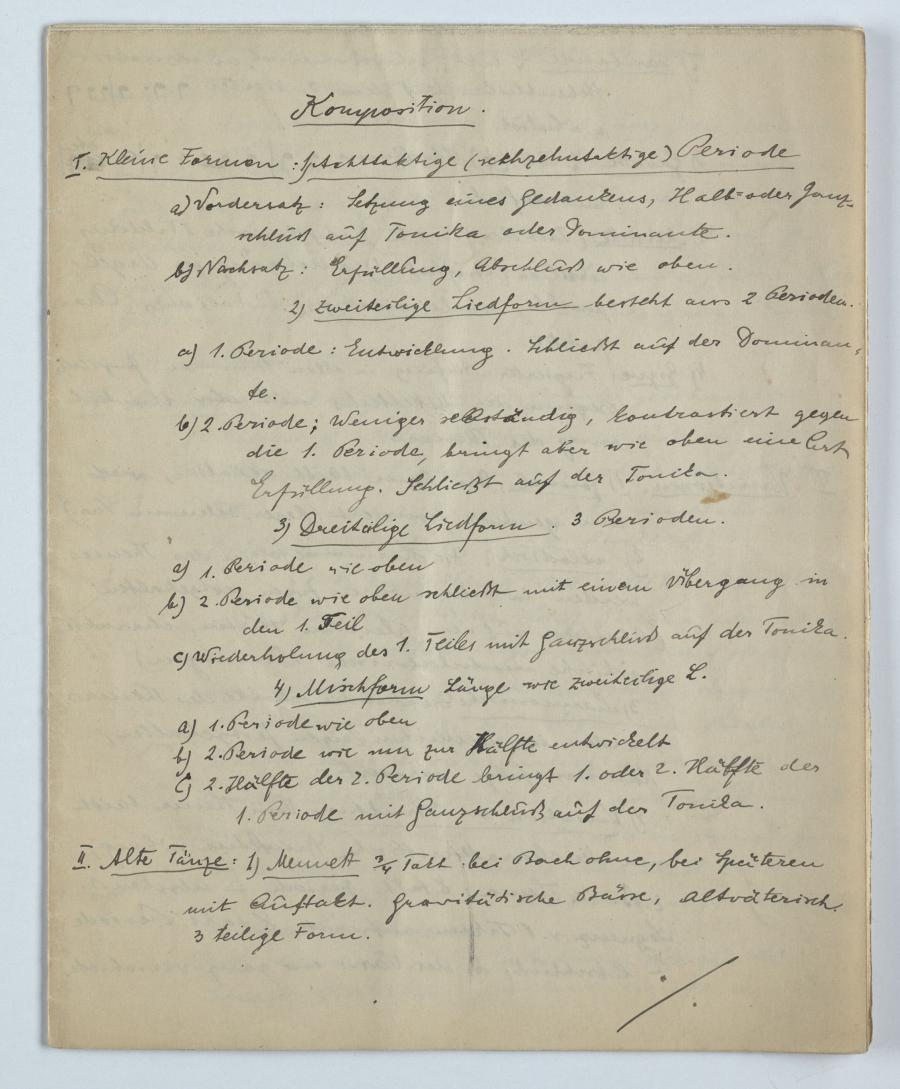 Komposition.
I. Kleine Formen: 1) Achttaktige (sechzehntaktige) Periode
a) Vordersatz: Setzung eines Gedankens, Halb= oder Ganz-
schluß auf Tonika oder Dominante.
b) Nachsatz: Erfüllung, Abschluß wie oben.
2) zweiteilige Liedform besteht aus 2 Perioden.
a) 1. Periode: Entwicklung. Schließt auf der Dominan-
te.
b) 2. Periode; Weniger selbständig, kontrastiert gegen
die 1. Periode, bringt aber wie oben eine Art
Erfüllung. Schließt auf der Tonika.
3) Dreiteilige Liedform. 3 Perioden.
a) 1. Periode wie oben
b) 2. Periode wie oben schließt mit einem Übergang in
den 1. Teil
c) Wiederholung des 1. Teiles mit Ganzschluß auf der Tonika.
4) Mischform Länge wie zweiteilige L.
a) 1. Periode wie oben
b) 2. Periode wie nur zur Hälfte entwickelt
c) 2. Hälfte der 2. Periode bringt 1. oder 2. Hälfte der
1. Periode mit Ganzschluß auf der Tonika.
II. Alte Tänze: 1) Menuett 3/4 Takt bei Bach ohne, bei Späteren
mit Auftakt. Gravitädische Bässe, altväterisch.
3 teilige Form.